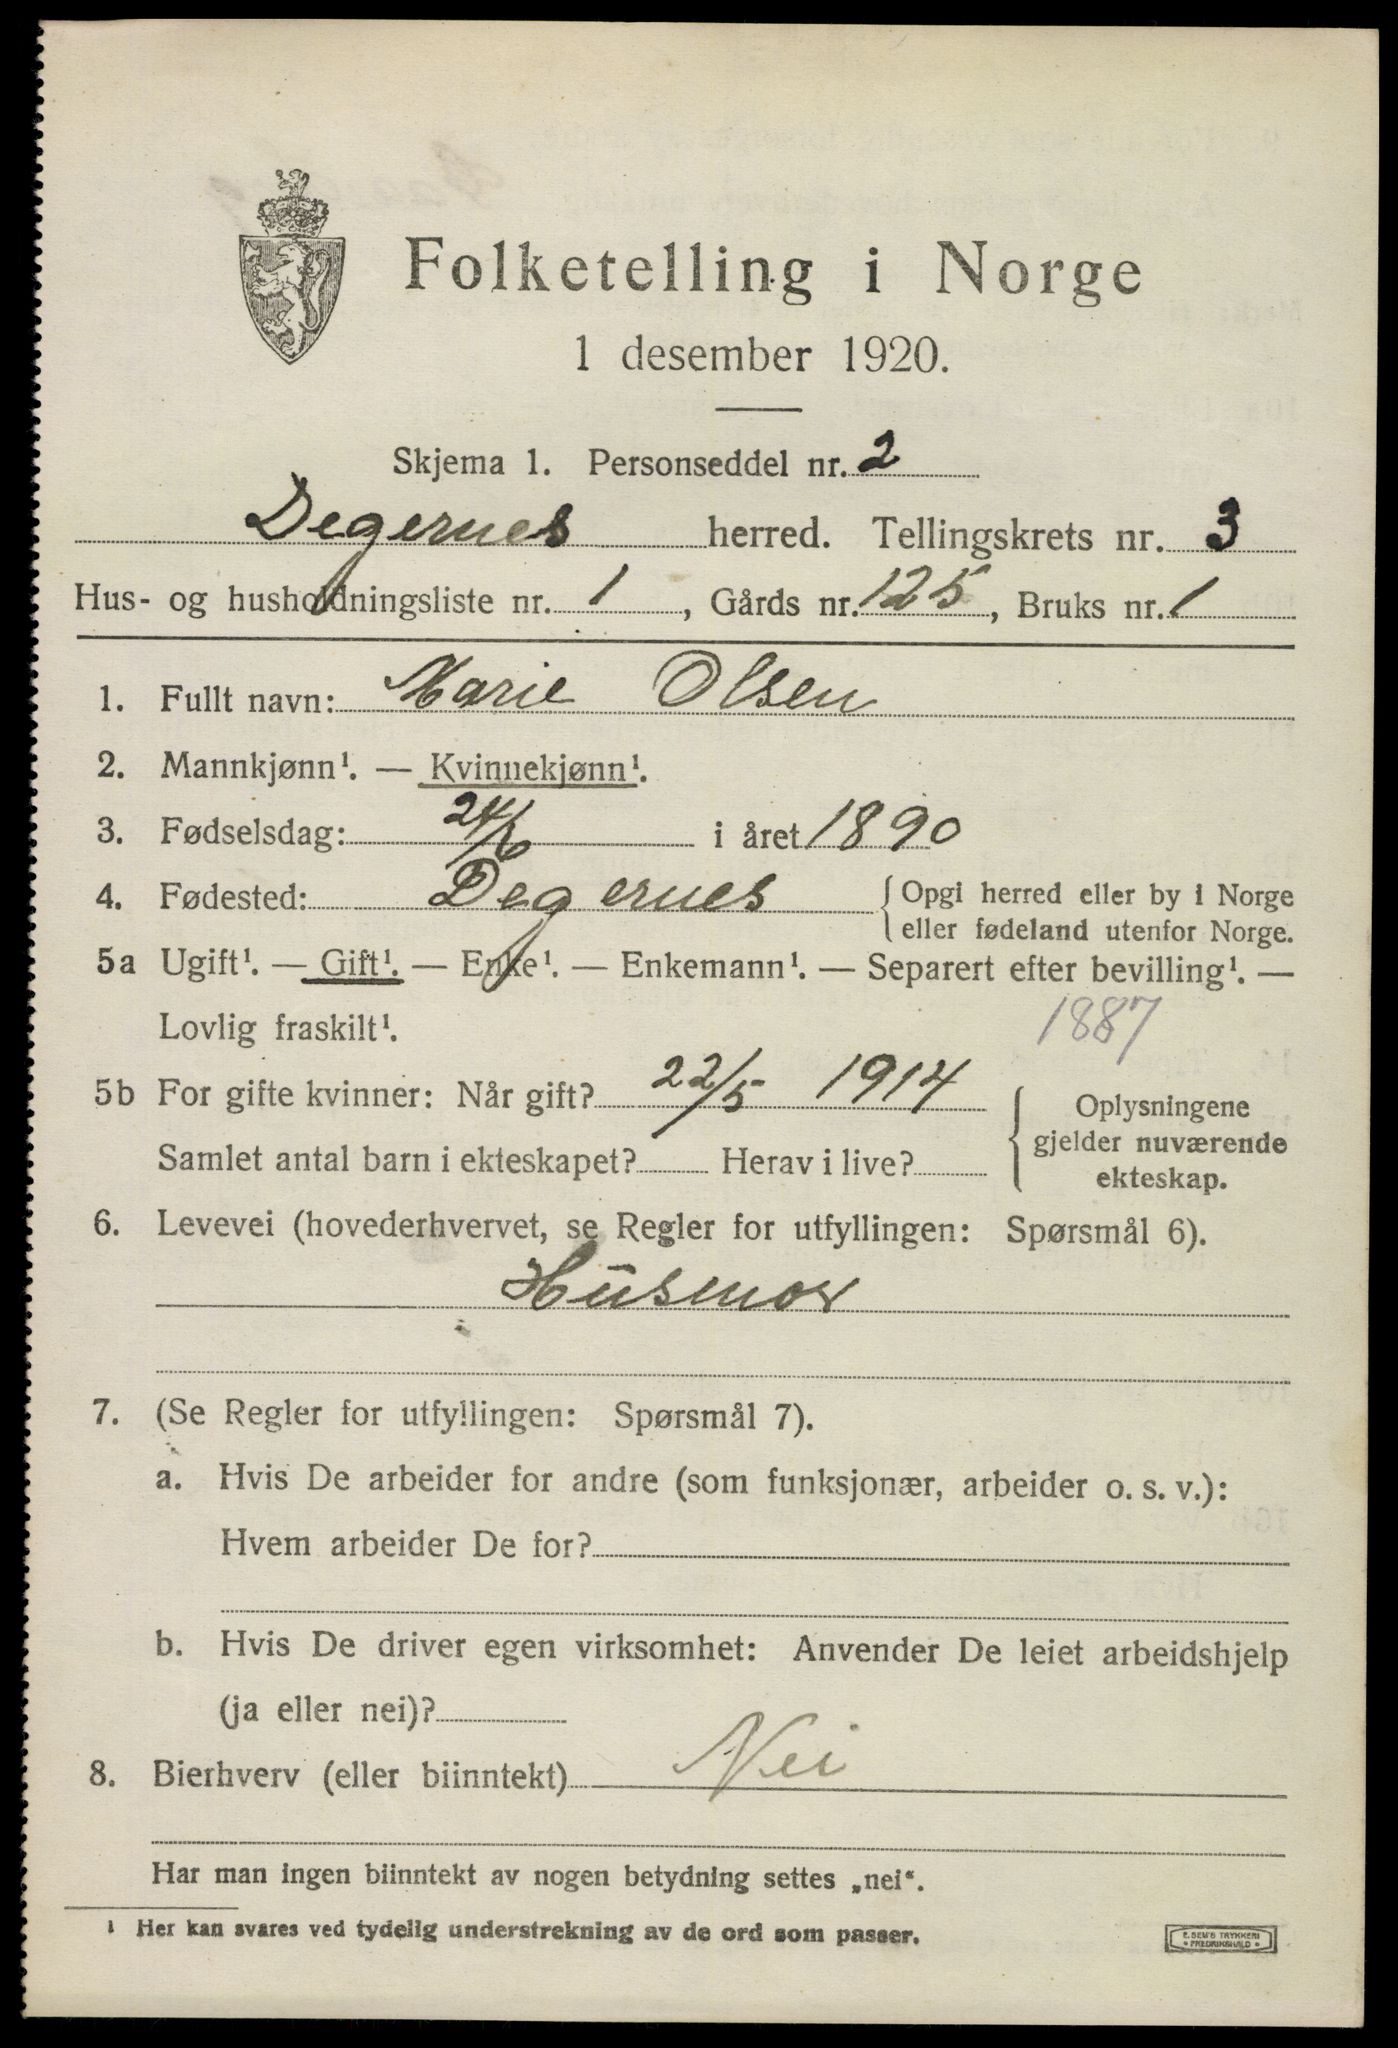 Folketelling i Norge
1 desember 1920.
Skjema 1. Personseddel nr. 2
Degernes herred. Tellingskrets nr. 3
Hus- og husholdningsliste nr. 1, Gårds nr. 125, Bruks nr. 1
1. Fullt navn: Marie Olsen
2. Mannkjønn¹. — Kvinnekjønn¹.
3. Fødselsdag: 24/6 i året 1890
4. Fødested: Degernes {Opgi herred eller by i Norge
eller fødeland utenfor Norge.
5a Ugift¹. — Gift¹. — Enke¹. — Enkemann¹. — Separert efter bevilling¹. —
Lovlig fraskilt¹. 1887
5b For gifte kvinner: Når gift? 22/5 1914 {Oplysningene
gjelder nuværende
Samlet antal barn i ekteskapet? Herav i live?
ekteskap.
6. Levevei (hovederhvervet, se Regler for utfyllingen: Spørsmål 6).
Husmor
7. (Se Regler for utfyllingen: Spørsmål 7).
a. Hvis De arbeider for andre (som funksjonær, arbeider o. s. v.):
Hvem arbeider De for?
b. Hvis De driver egen virksomhet: Anvender De leiet arbeidshjelp
(ja eller nei)?
8. Bierhverv (eller biinntekt) Nei
Har man ingen biinntekt av nogen betydning settes „nei“.
¹ Her kan svares ved tydelig understrekning av de ord som passer.
E. SEM'S TRYKKERI
• FREDRIKSHALD •